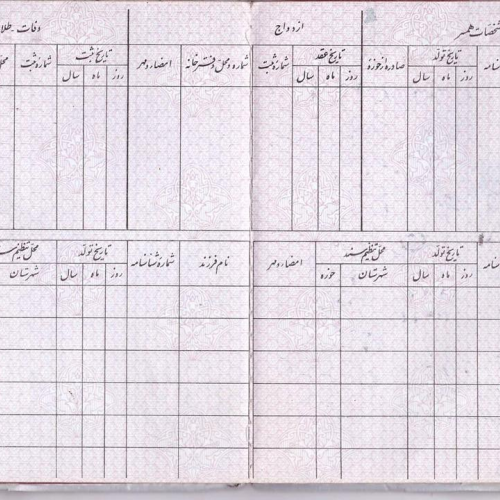 مشخصات همسر ازدواج وفات - طلا
شناسنامه تاریخ تولد صادره از حوزه تاریخ عقد شماره ثبت شماره و محل دفترخانه امضاء و مهر تاریخ ثبت شماره ثبت محل
روز ماه سال روز ماه سال روز ماه سال
شناسنامه تاریخ تولد محل تنظیم سند امضاء و مهر نام فرزند شماره شناسنامه تاریخ تولد محل تنظیم سند
روز ماه سال شهرستان حوزه روز ماه سال شهرستان